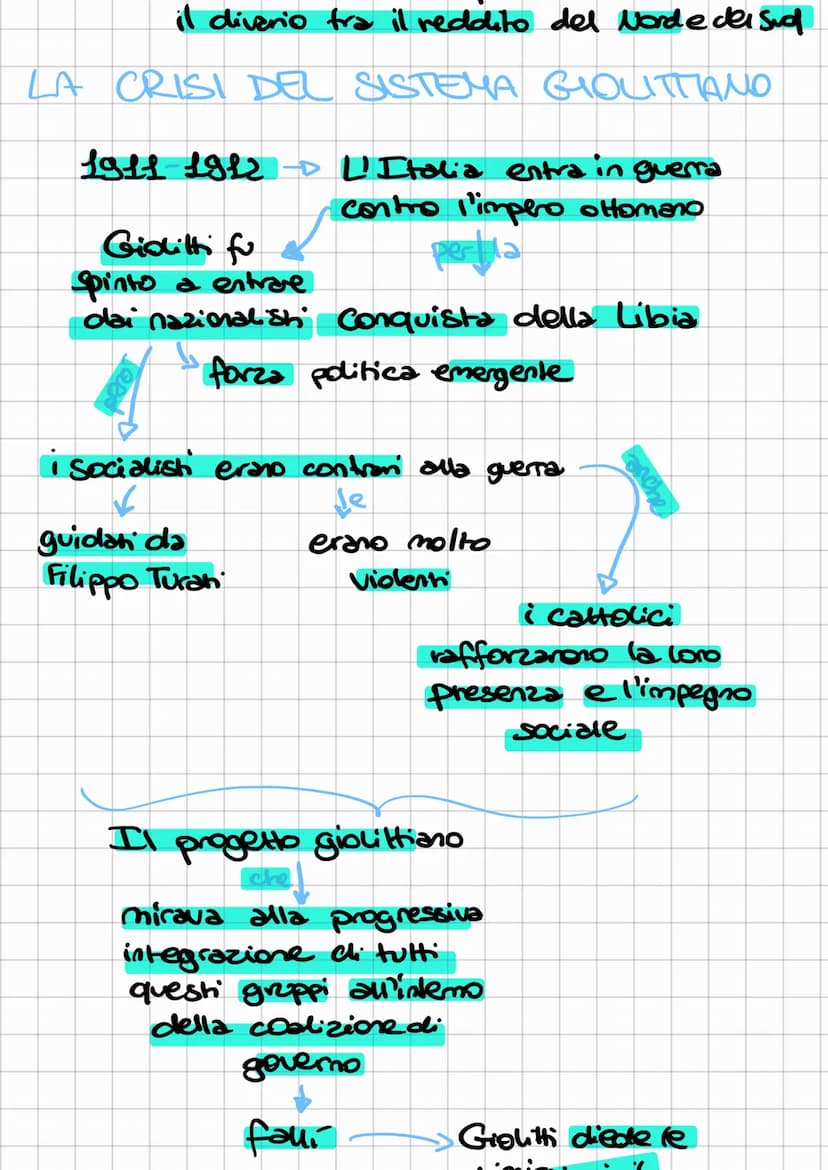 il divario tra il reddito del Nord e del Sud
LA CRISI DEL SISTEMA GIOLITTIANO
1911-1912 → L'Italia entra in guerra
contro l'impero ottomano
Giolitti fu
spinto a entrare
dai nazionalisti
per la
conquista della Libia
forza politica emergente
però
i socialisti erano contrari alla guerra
anche
guidati da
Filippo Turati
e
erano molto
violenti
i cattolici
rafforzarono la loro
presenza e l'impegno
sociale
Il progetto giolittiano
che
mirava alla progressiva
integrazione di tutti
questi gruppi all'interno
della coalizione di
governo
fallì → Giolitti diede le